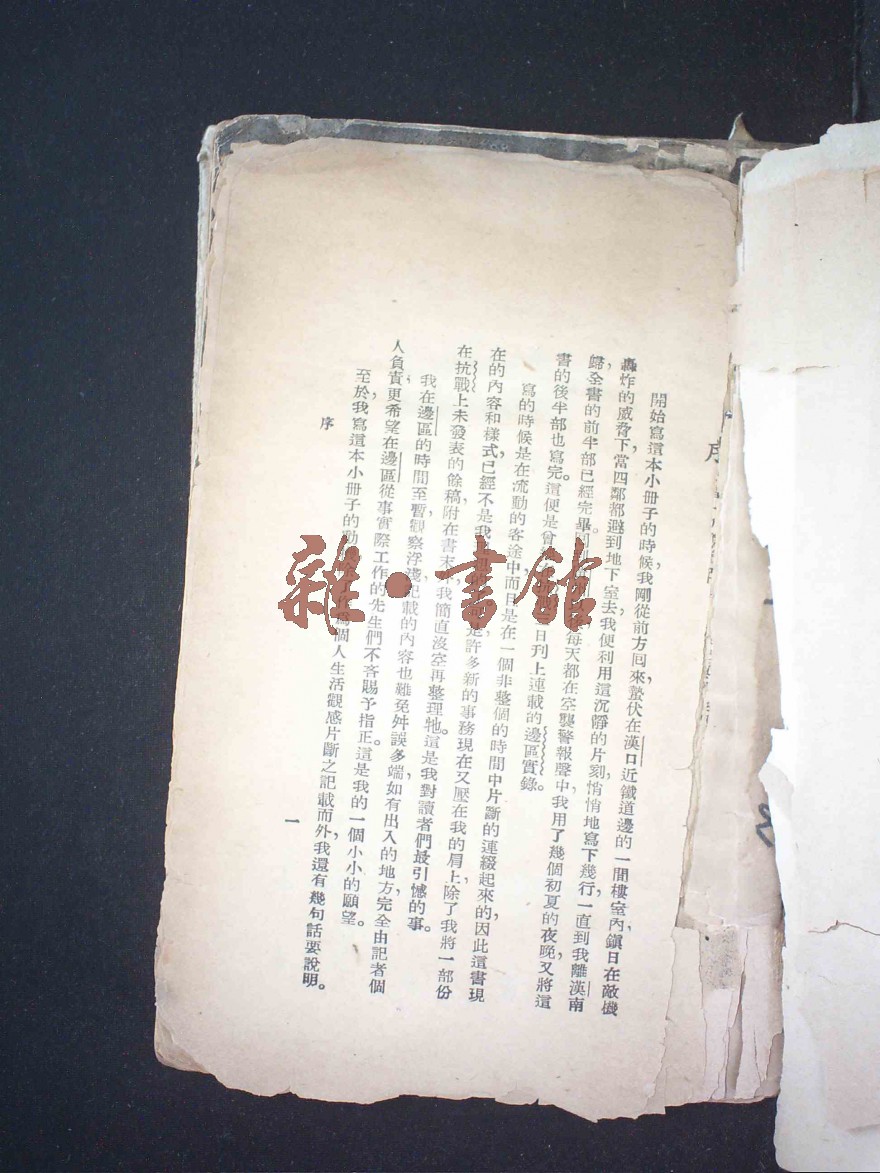 開始寫這本小冊子的時候，我剛從前方囘來，蟄伏在漢口近鐵道邊的一間樓室內，鎮日在敵機
轟炸的威脅下，當四鄰都避到地下室去，我便利用這沉靜的片刻，悄悄地寫下幾行，一直到我離漢南
歸，全書的前半部已經完畢。每天都在空襲警報聲中，我用了幾個初夏的夜晚，又將這
書的後半部也寫完。這便是日刋上連載的邊區實錄。
寫的時候是在流動的客途中，而且是在一個非整個的時間中片斷的連綴起來的，因此這書現
在的內容和樣式，已經不是我是許多新的事務現在又壓在我的肩上，除了我將一部份
在抗戰上未發表的餘稿附在書末，我簡直沒空再整理牠。這是我對讀者們最引憾的事。
我在邊區的時間至暫，觀察浮淺，記載的內容也難免舛誤多端，如有出入的地方，完全由記者個
人負責，更希望在邊區從事實際工作的先生們不吝賜予指正。這是我的一個小小的願望。
至於我寫這本小冊子的動作爲個人生活觀感片斷之記載而外，我還有幾句話要說明。
序
一
雜·書館